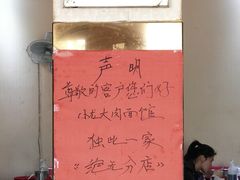 声明
尊敬的客户您们好
小龙大肉面馆
独此一家
“绝无分店”